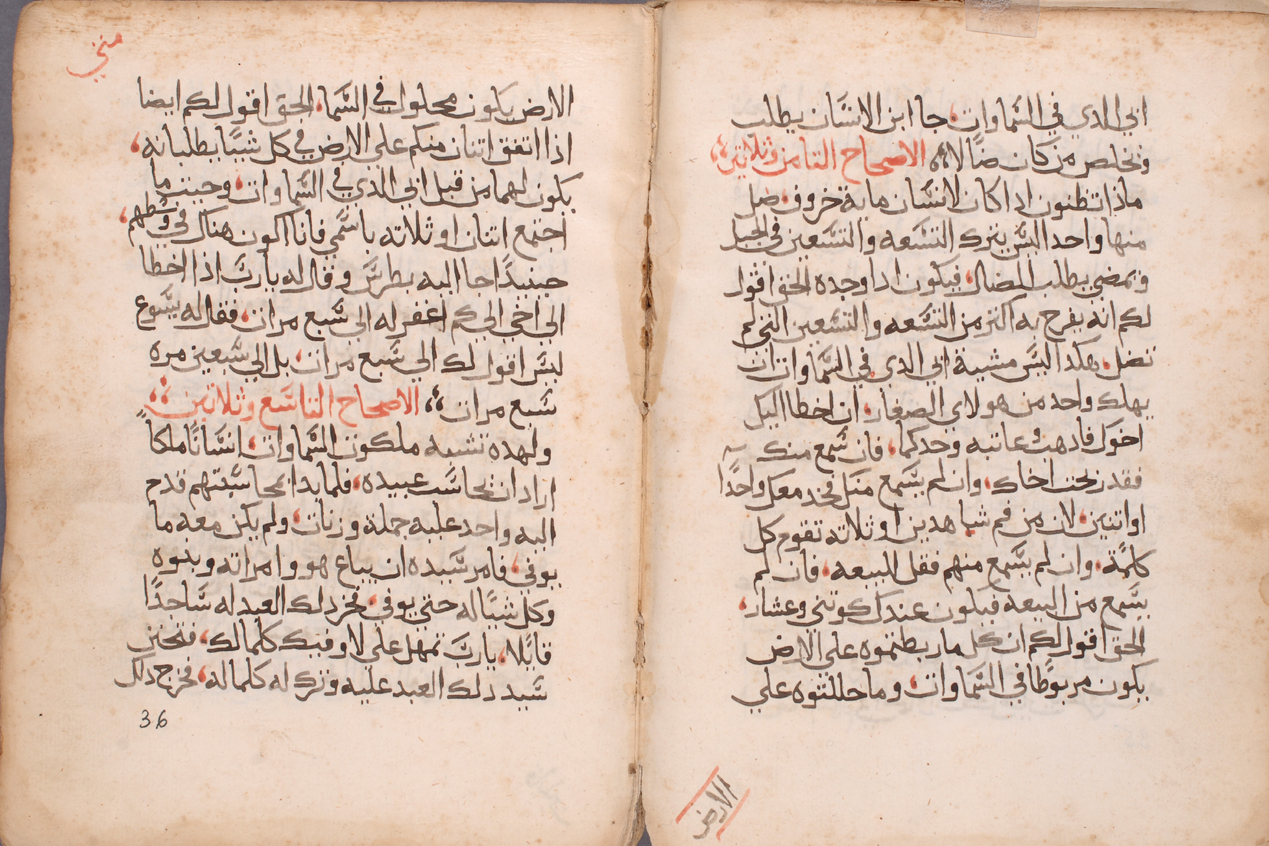 ابي الدي في السماوات، جا ابن الانسان يطلب
ويخلص من كان ضالا ؞ الاصحاح التامن وثلاتين ؞
ماذا تظنون اذا كان لانسان ماية خروف، ضل
منها واحد اليس يترك التسعه والتسعين في الجبل
ويمضي يطلب الضال، فيكون ادا وجده الحق اقول
لكم انه يفرح به اكتر من التسعه والتسعين التي لم
تضل، هكدا ليس مشية ابي الدي في السماوات ان
يهلك واحد من هولاي الصغار، ان اخطا اليك
اخوك فادهب عاتبه وحدكما، فان سمع منك
فقد ربحت اخاك، وان لم يسمع منك فخد معك واحدًا
او اتنين، لان من فم شاهدين او ثلاته تقوم كل
كلمة، وان لم يسمع منهم فقل للبيعه، فان لم
يسمع من البيعه فيكون عندك كوتني وعشار،
الحق اقول لكم ان كل ما ربطتموه علي الارض
يكون مربوطًا في السماوات، وما حللتوه علي
الارض
متي
الارض يكون محلولا في السما، الحق اقول لكم ايضا
اذا اتفق اتنان منكم علي الارض في كل شييًا يطلبانه،
يكون لهما من قبل ابي الذي في السماوات، وحيت ما
اجتمع اتنان او ثلاته باسمي فانا اكون هناك في وسطهم،
حينيدًا جا اليه بطرس وقال له يارب اذا اخطا
الي اخي الي كم اغفر له الي سبع مرات، فقال له يسوع
ليس اقول لك الي سبع مرات، بل الي سبعين مره
سبع مرات ؞ الاصحاح التاسع وثلاتين ؞
ولهده تشبه ملكوت السماوات، انسانًا ملكًا
اراد ان يحاسب عبيده، فلما بدا بمحاسبتهم قدم
اليه واحد عليه جملة وزنات، ولم يكن معه ما
يوفي، فامر سيده ان يباع هو وامراته وبنوه
وكل شيًا له حتي يوفي، فخر دلك العبد له ساجدًا
قايلًا، يارب تمهل علي لاوفيك كلما لك، فتحنن
سيد دلك العبد عليه وترك له كلما له، فخرج دلك
36